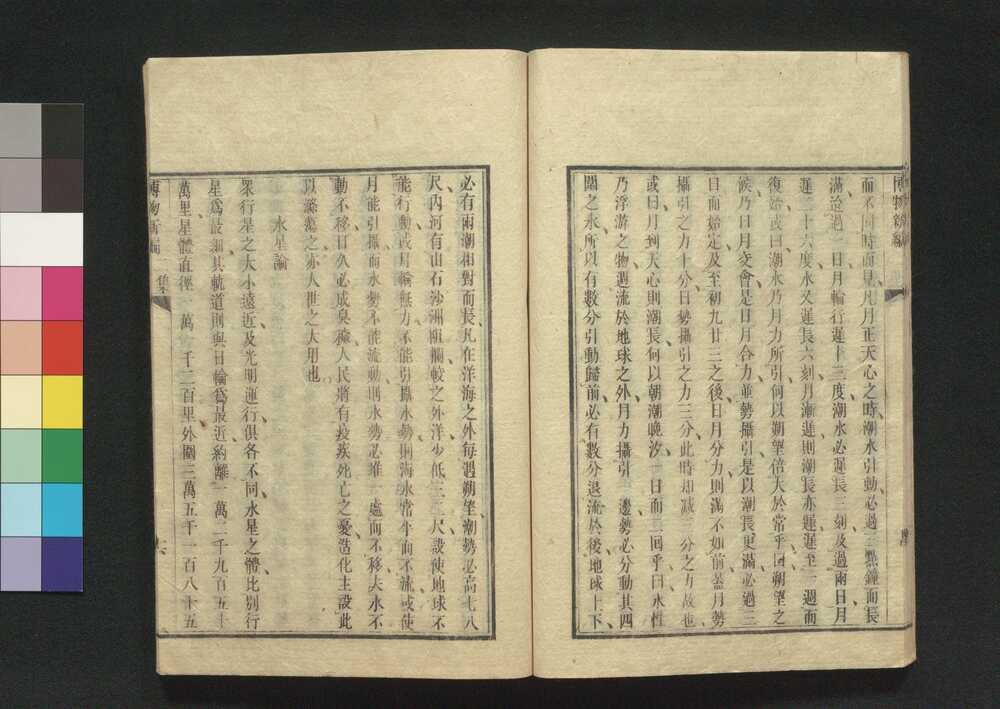 博物新編
而不同時而見凡月正天心之時潮水引動必過三點鐘而長
滿迨過一日月輪行遲十三度潮水必遲長三刻及過兩日月
遲二十六度水又遲長六刻月漸遲則潮長亦遲遲至一週而
復始或曰潮水乃月力所引何以朔望倍大於常乎曰朔望之
候乃日月交會是日月合力並勢攝引是以潮長更滿必過三
日而始定及至初九廿三之後日月分力則滿不如前蓋月勢
攝引之力十分日勢攝引之力三分此時却减三分之力故也
或曰月到天心則潮長何以朝潮晩汐一日而二回乎曰水性
乃浮游之物週流於地球之外月力攝引一邊勢必分動其四
圍之水所以有數分引動歸前必有數分退流於後地球上下
必有兩潮相對而長凡在洋海之外每遇朔望潮勢必高七八
尺内河有山石沙洲阻攔較之外洋少低三二尺設使地球不
能行動或月輪無力不能引攝水勢則海水常平而不流或使
月能引攝而水勢不能流動則水勢必堆一處而不移夫水不
動不移日久必成臭穢人民將有疫疾死亡之憂造化主設此
以滌蕩之亦人世之大用也
水星論
衆行星之大小遠近及光明運行俱各不同水星之體比别行
星爲最細其軌道則與日輪爲最近約離一萬二千九百五十
萬里星體直徑一萬一千二百里外圍三萬五千一百八十五
博物新編 二集